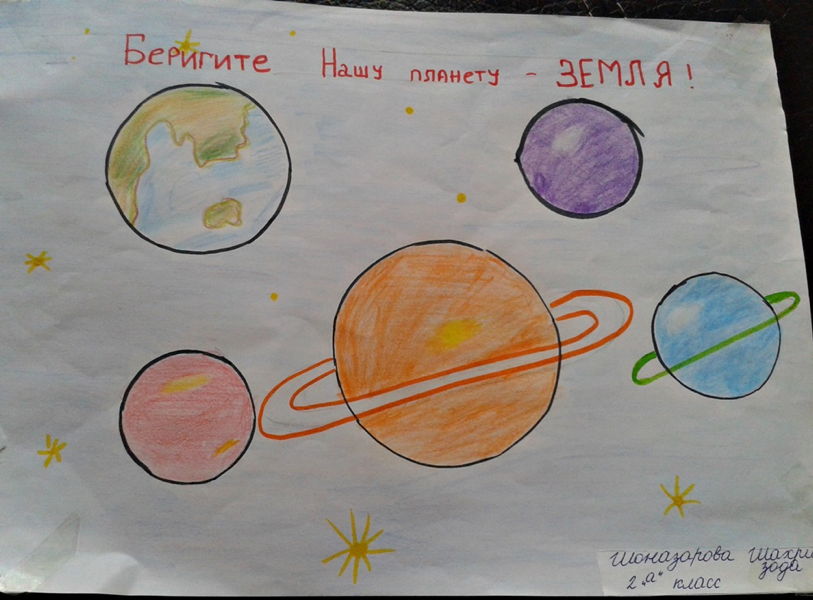 Беригите Нашу планету - ЗЕМЛЯ!
Шоназарова Шахри
зода
2 „а" класс